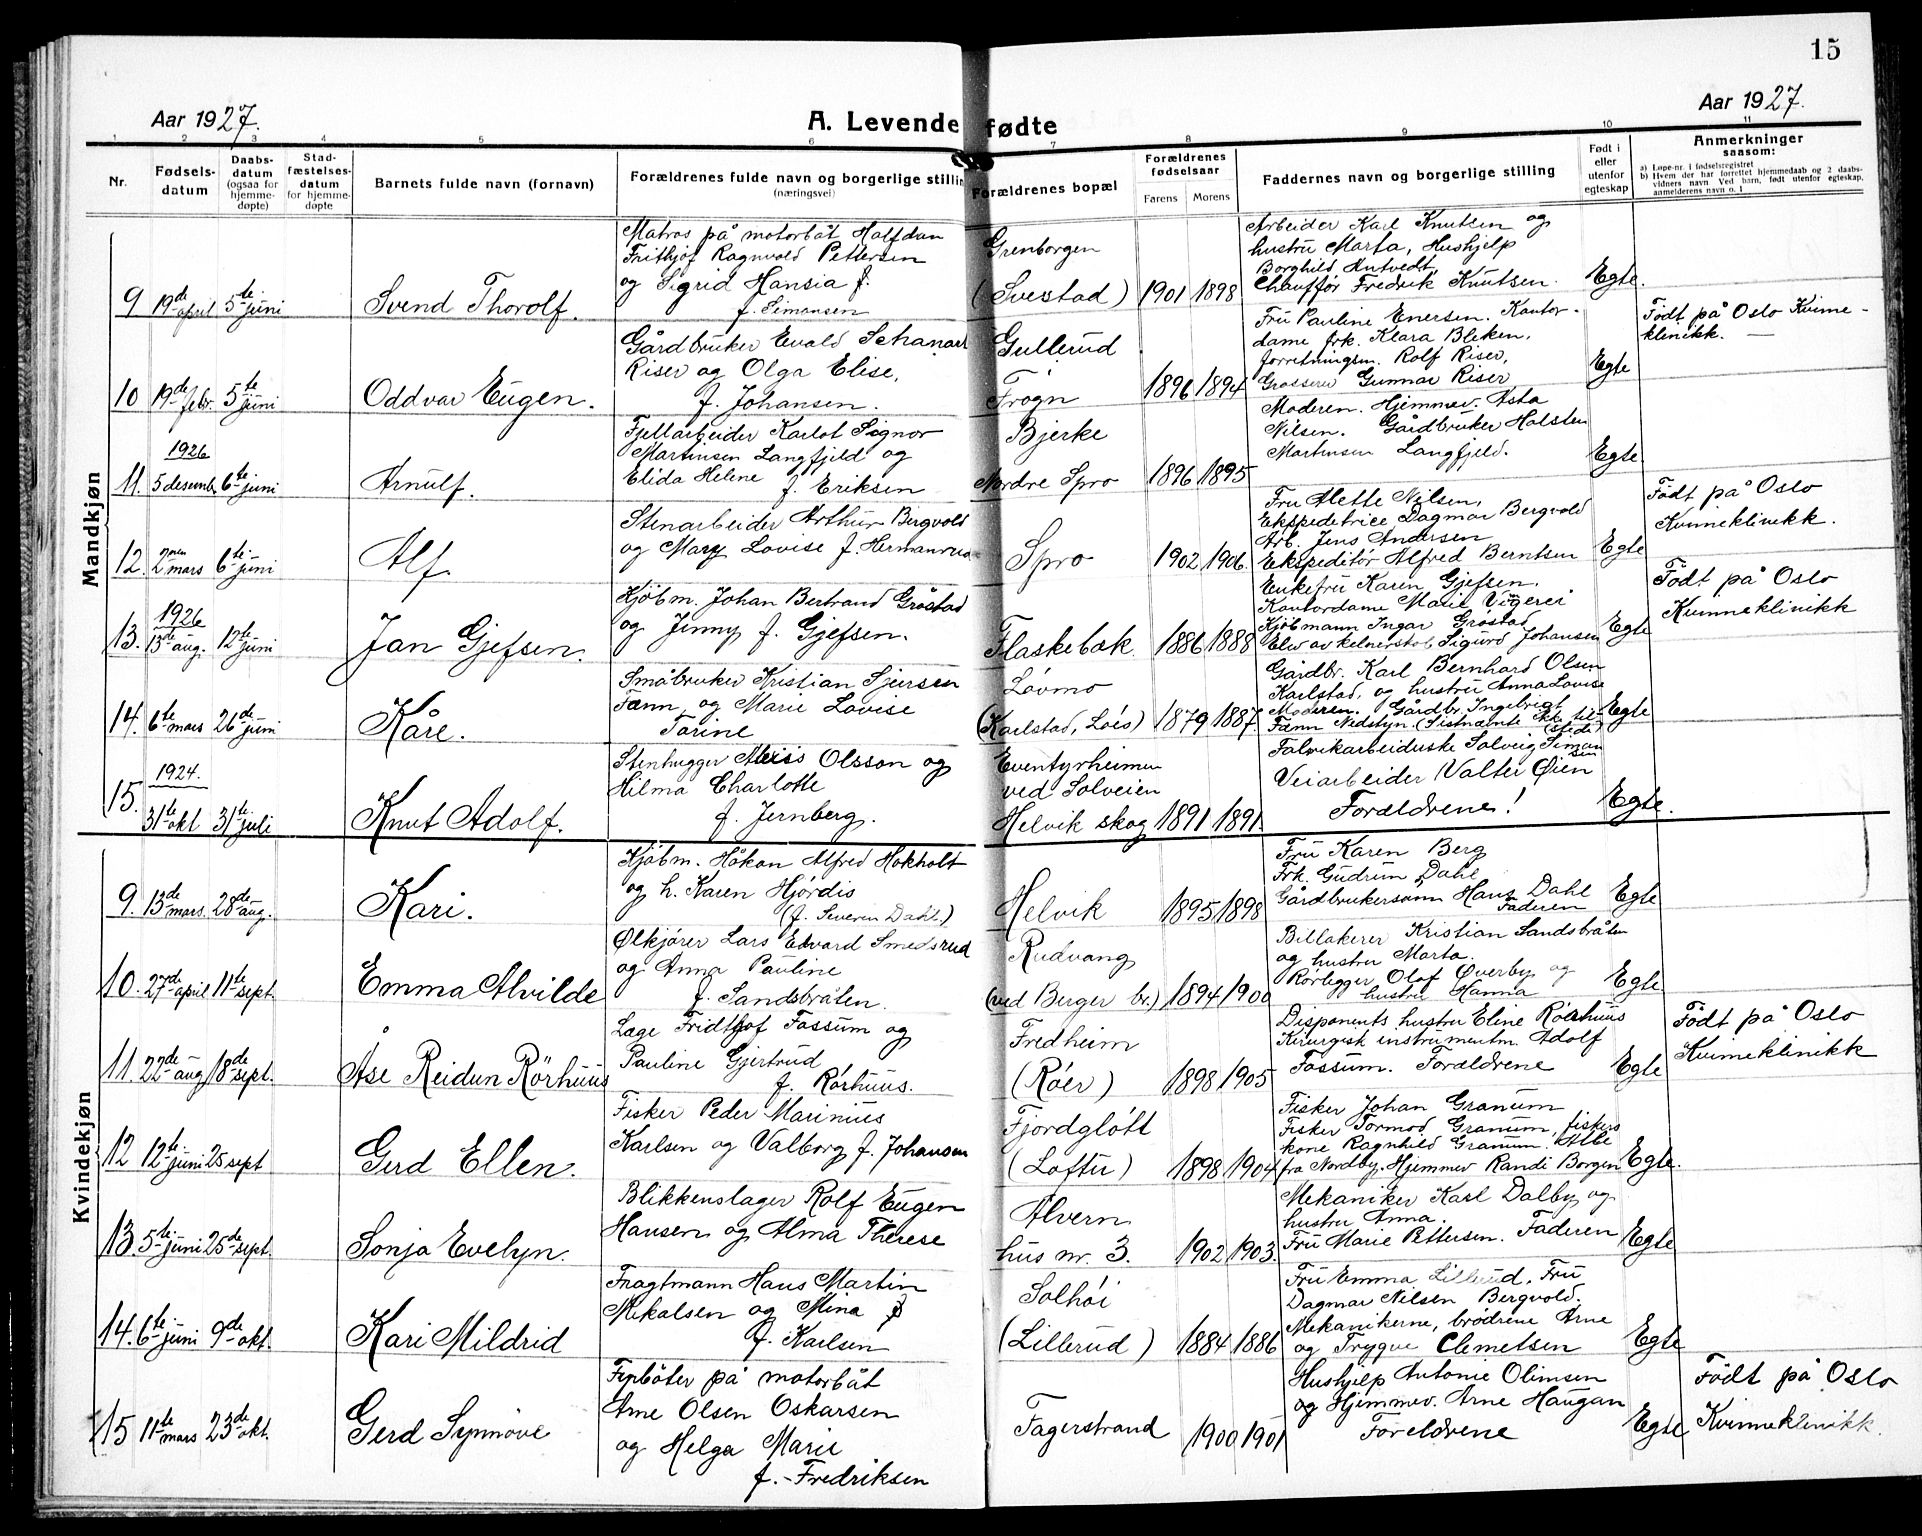 15
Aar 1927.
A. Levende fødte
Aar 1927.
1 2 3 4 5 6 7 8 9 10 11
Nr.
Fødsels-
datum
Daabs-
datum
(ogsaa for
hjemme-
døpte)
Stad-
fæstelses-
datum
for hjemme-
døpte
Barnets fulde navn (fornavn)
Forældrenes fulde navn og borgerlige stilling
(næringsvei)
Forældrenes bopæl
Forældrenes
fødselsaar
Farens Morens
Faddernes navn og borgerlige stilling
Født i
eller
utenfor
egteskap
Anmerkninger
saasom:
a) Løpe-nr. i fødselsregistret
b) Hvem der har forrettet hjemmedaab og 2 daabs-
vidners navn Ved barn, født utenfor egteskap,
anmelderens navn o. l
Mandkjøn
9 19de april 5te juni
Svend Thorolf.
Matros på motorbåt Halfdan
Frithjof Ragnvald Pettersen
og Sigrid Hansia f.
f. Simonsen
Grenborgen
(Svestad) 1901 1898
Arbeider Karl Knutsen og
hustru Marta, Hushjelp
Borghild Antvedt,
Chauffør Fredrik Knutsen.
Egte.
10 19de febr. 5te juni
Oddvar Eugen.
Gårdbruker Evald
Riser og Olga Elise,
f. Johansen.
Gullerud
Frogn 1896 1894
Fru Pauline Enersen. Kontor-
dame frk. Klara Bleken,
forretningsm. Rolf Riser,
Grosserer Gunnar Riser
Egte
Født på Oslo Kvinne-
klinikk. —
1926
11. 5 desemb. 6te juni
Arnulf.
Fjellarbeider Karlot Signor
Martinsen Langfjeld og
Elida Helene f. Eriksen
Bjerke
Nordre Spro 1896 1895
Moderen. Hjemmev. Asta
Nilsen. Gårdbruker Halsten
Martinsen Langfjeld.
Egte.
12. 2nen mars 6te juni
Alf.
Stenarbeider Arthur Bergvold
og Mary Lovise f. Hermansrud
Spro 1902 1906.
Fru Alette Nilsen,
Ekspeditrice Dagmar Bergvold
Arb. Jens Andersen
Ekspeditør Alfred Berntsen
Egte
Født på Oslo
Kvinneklinikk.
1926
13. 13de aug. 12te juni
Jan Gjefsen.
Kjøbm. Johan Bertrand Gråstad
og Jenny f. Gjefsen.
Flaskebæk. 1886 1888
Enkefru Karen Gjefsen.
Kontordame Marie Vigerei
Kjøbmann Ingar Gråstad
Elev av kelnerskol. Sigurd Johansen
Egte
Født på Oslo
Kvinneklinikk
14. 6te mars 26de juni
Kåre.
Småbruker Kristian Sjursen
Fænn og Marie Lovise
Torine
Løvmo
(Karlstad, Loés) 1879 1887.
Gårdbr. Karl Bernhard Olsen
Karlstad, og hustru Anna Lovise
Moderen. Gårdbr. Ingebrigt
Fænn Nedstyn. (Sistnævnte ikke til-
stede)
Egte
1924.
15. 31te okt 31te juli
Knut Adolf.
Stenhugger Alexis Olsson og
Hilma Charlotte
f. Jernberg.
Eventyrheimen
ved Solveien
Helvik skog 1891 1891.
Fabrikarbeiderske Solveig Simonsen
Veiarbeider Valter Øien
Foreldrene!
Egte.
Kvindekjøn
9. 13de mars. 28de aug.
Kari.
Kjøbm. Håkon Alfred Hokholt
og h. Karen Hjördis
(f. Severin Dahl.)
Helvik 1895 1898
Fru Karen Berg
Frk. Gudrun Dahl
Gårdbrukersønn Hans Dahl
Faderen
Egte
10. 27de april 11te sept.
Emma Alvilde
Ølkjører Lars Edvard Smedsrud
og Anna Pauline
f. Sandsbråten.
Rudvang
(ved Berger br.) 1894 1900
Billakerer Kristian Sandsbråten
og hustru Marta.
Rørlegger Olaf Øverby og
hustru Hanna
Egte
11. 22de aug 18de sept.
Åse Reidun Rørhuus
Læge Fridtjof Fossum og
Pauline Gjertrud
f. Rørhuus.
Fredheim
(Röer) 1898 1905
Disponents hustru Elene Rörhuus
Kirurgisk instrumentm. Adolf
Fossum. Foreldrene
Egte
Født på Oslo
Kvinneklinikk
12 12te juni 25 sept
Gerd Ellen.
Fisker Peder Marinius
Karlsen og Valborg f. Johansen
Fjordgløtt
(Loftu) 1898 1904
Fisker Johan Granum
Fisker Tormod Granum, fiskers
kone Ragnhild Granum. Alle
fra Nordby. Hjemmev Randi Borgen
Egte.
13 5te juni 25de sept.
Sonja Evelyn.
Blikkenslager Rolf Eugen
Hansen og Alma Therese
Alvern
hus nr. 3. 1902 1903.
Mekaniker Karl Dalby og
hustru Anna.
Fru Marie Pettersen. Faderen
Egte
14. 6te juni 9de okt.
Kari Mildrid
Fragtmann Hans Martin
Mikalsen og Mina
f. Karlsen
Solhöi
(Lillerud) 1884 1886
Fru Emma Lillerud. Fru
Dagmar Nilsen Bergvold.
Mekanikerne, brødrene Arne
og Trygve Clemetsen
Egte
15 11te mars 23de okt.
Gerd Synnöve
Fyrböter på motorbåt
Arne Olsen Oskarsen
og Helga Marie
f. Fredriksen
Fagerstrand 1900 1901
Hushjelp Antonie Olimsen
og Hjemmev. Arne Haugan
Foreldrene
Egte
Født på Oslo
Kvinneklinikk.